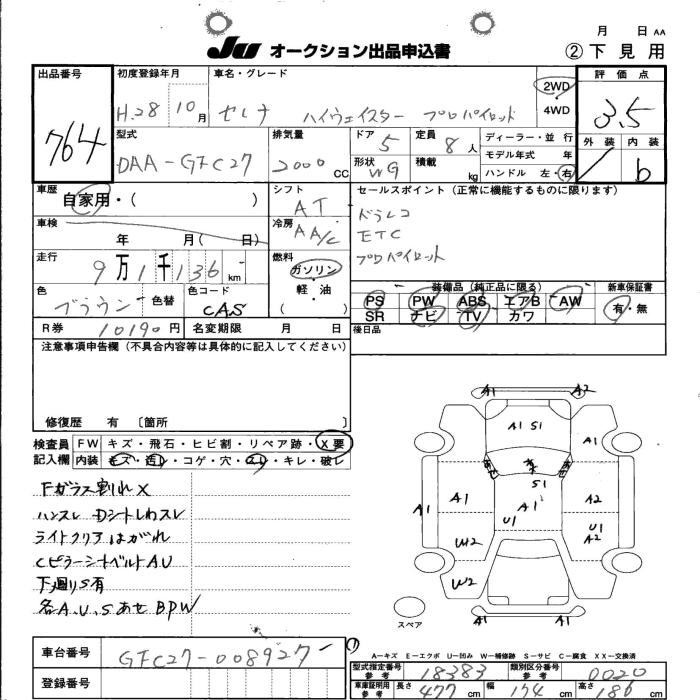 月 日 AA
JU オークション出品申込書
② 下見用
出品番号
764
初度登録年月
H.28 10月
車名・グレード
セレナ ハイウェイスター プロパイロット
2WD
・
4WD
評価点
3.5
外装 内装
/ b
型式
DAA-GFC27
排気量
2000 CC
ドア
5
定員
8人
形状
WG
積載
kg
ディーラー・並行
モデル年式 年
ハンドル 左・右
車歴
自家用・( )
シフト
AT
セールスポイント(正常に機能するものに限ります)
ドラレコ
ETC
プロパイロット
車検
年 月( 日)
冷房
AA/C
走行
9万1千136km
燃料
ガソリン
・
軽・油
( )
色
ブラウン
色替
色コード
CAS
装備品(純正品に限る)
PS PW ABS エアB AW
SR ナビ TV カワ
新車保証書
有・無
R券 10190円
名変期限 月 日
後日品
注意事項申告欄(不具合内容等は具体的に記入してください)
修復歴 有 〔箇所 〕
検査員
記入欄
FW キズ・飛石・ヒビ割・リペア跡・X要
内装 キズ・汚レ・コゲ・穴・スレ・キレ・破レ
Fガラス割れX
ハンスレ Dシートしわスレ
ライトクリアはがれ
CピラーシートベルトAU
下廻りS有
各A.U.Sあせ BPW
A1 A2
A1 S1
A1 A1
S1
A1 A1 A1 A2
U1
W2 U1
A2
W2
A1 A1
スペア
車台番号
GFC27-008927
登録番号
A−キズ E−エクボ U−凹み W−補修跡 S−サビ C−腐食 XX−交換済
型式指定番号
参考
18383
類別区分番号
参考
0020
車庫証明用
参考
長さ 477cm 幅 174cm 高さ 186cm